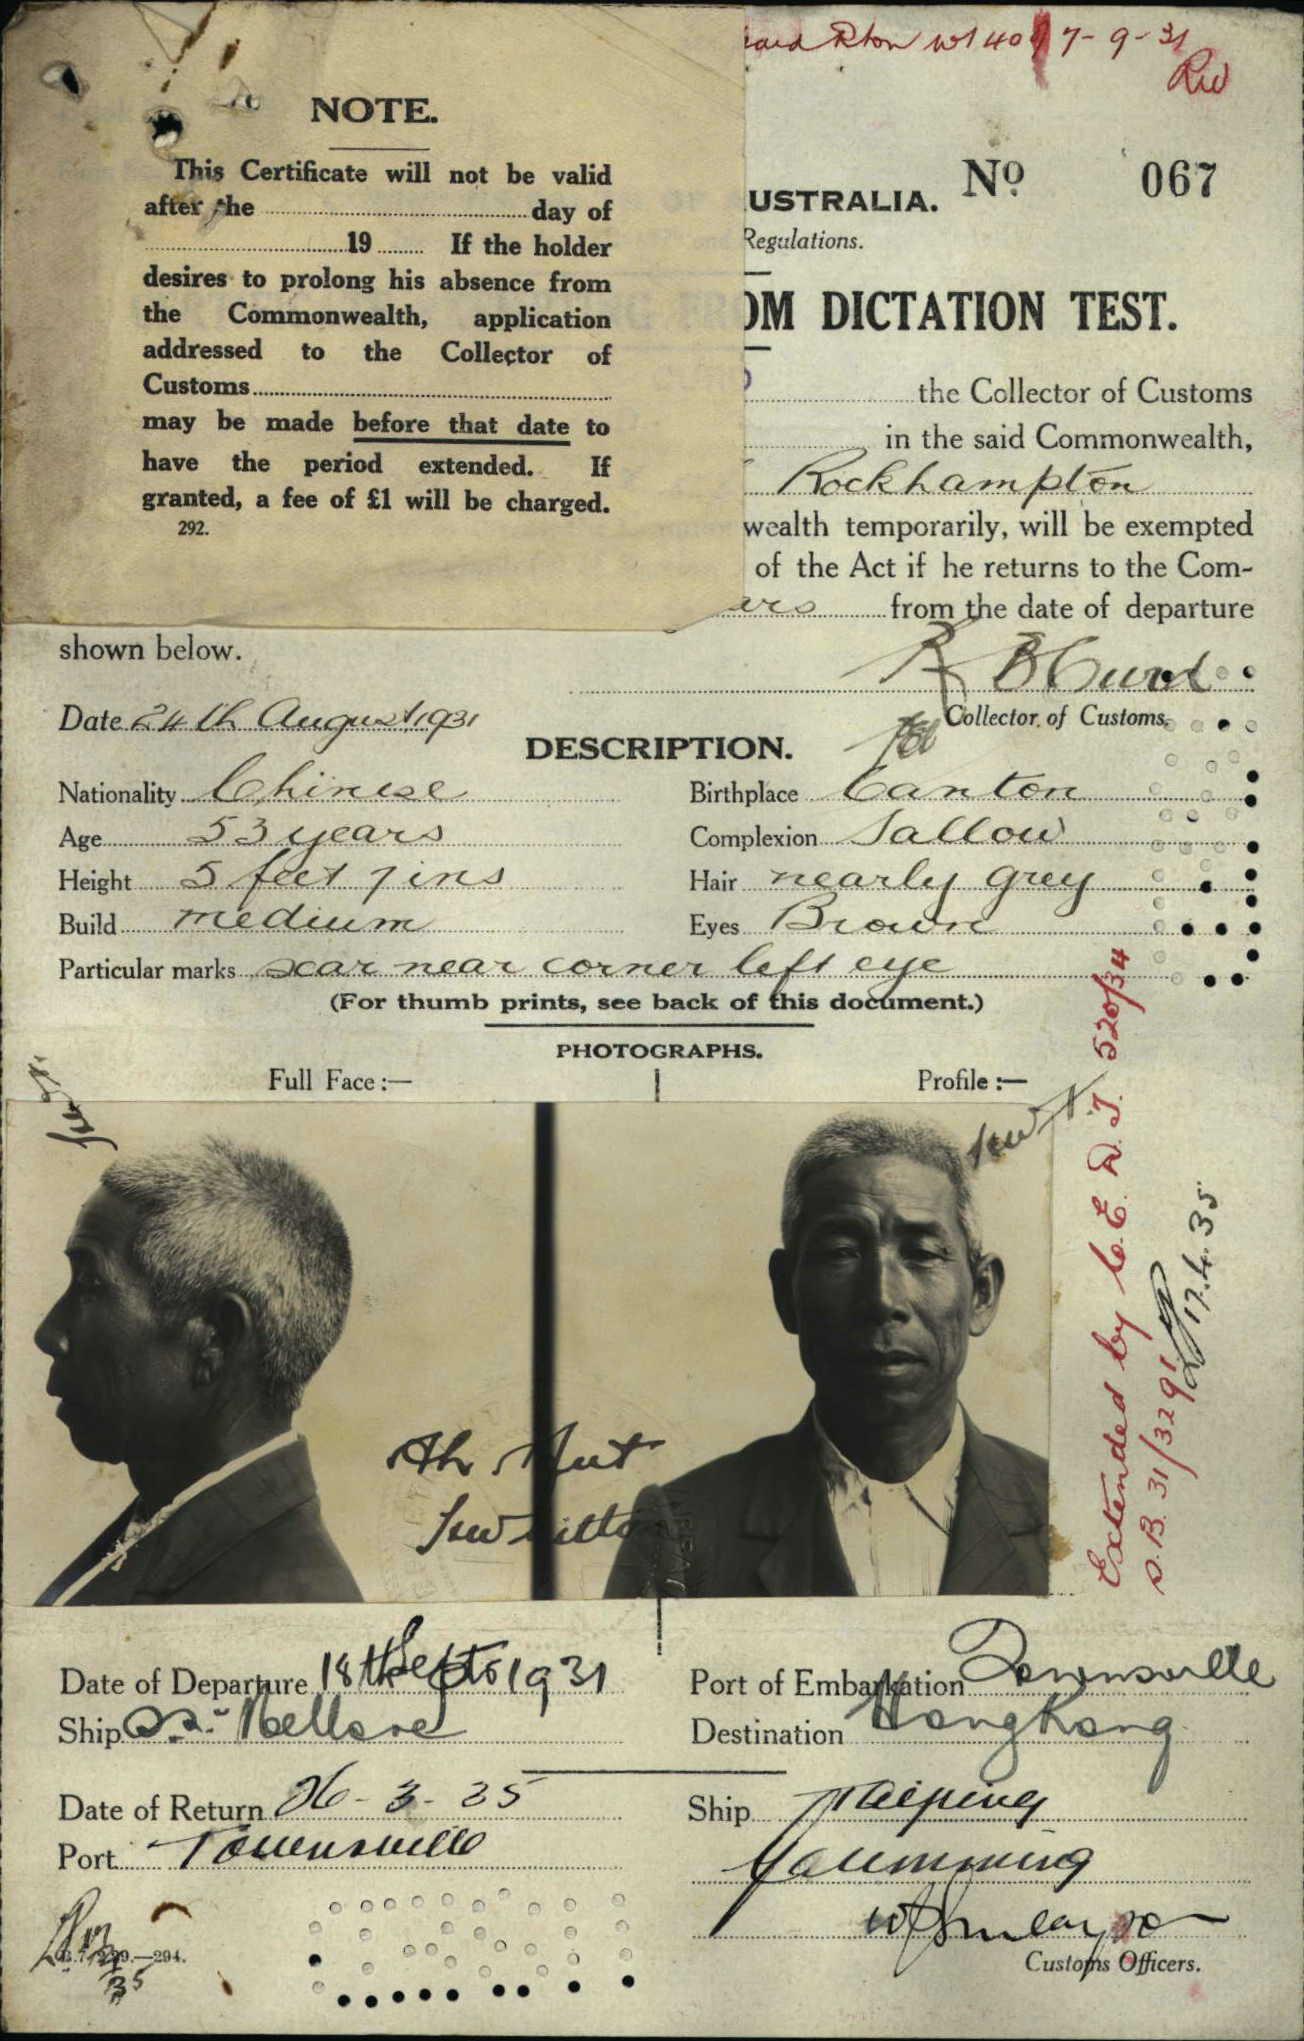 Rton W1 40 7-9-31
RW
NOTE.
This Certificate will not be valid
after the day of
19 If the holder
desires to prolong his absence from
the Commonwealth, application
addressed to the Collector of
Customs
may be made before that date to
have the period extended. If
granted, a fee of £1 will be charged.
292.
USTRALIA. No 067
Regulations.
OM DICTATION TEST.
the Collector of Customs
in the said Commonwealth,
Rockhampton
wealth temporarily, will be exempted
of the Act if he returns to the Com-
ars from the date of departure
shown below.
Collector of Customs.
Date 24th August 1931
DESCRIPTION.
Nationality Chinese Birthplace Canton
Age 53 years Complexion Sallow
Height 5 feet 7 ins Hair nearly grey
Build medium Eyes Brown
Particular marks scar near corner left eye
(For thumb prints, see back of this document.)
PHOTOGRAPHS.
Full Face :— Profile :—
Ah Nut
Extended by C.E.D.T. 520/34
S.B. 31/3291
17.4.35
Date of Departure 18th Sept 1931 Port of Embarkation Townsville
Ship S.S. Nellore Destination Hong Kong
Date of Return 26-3-35 Ship Taiping
Port Townsville
Customs Officers.